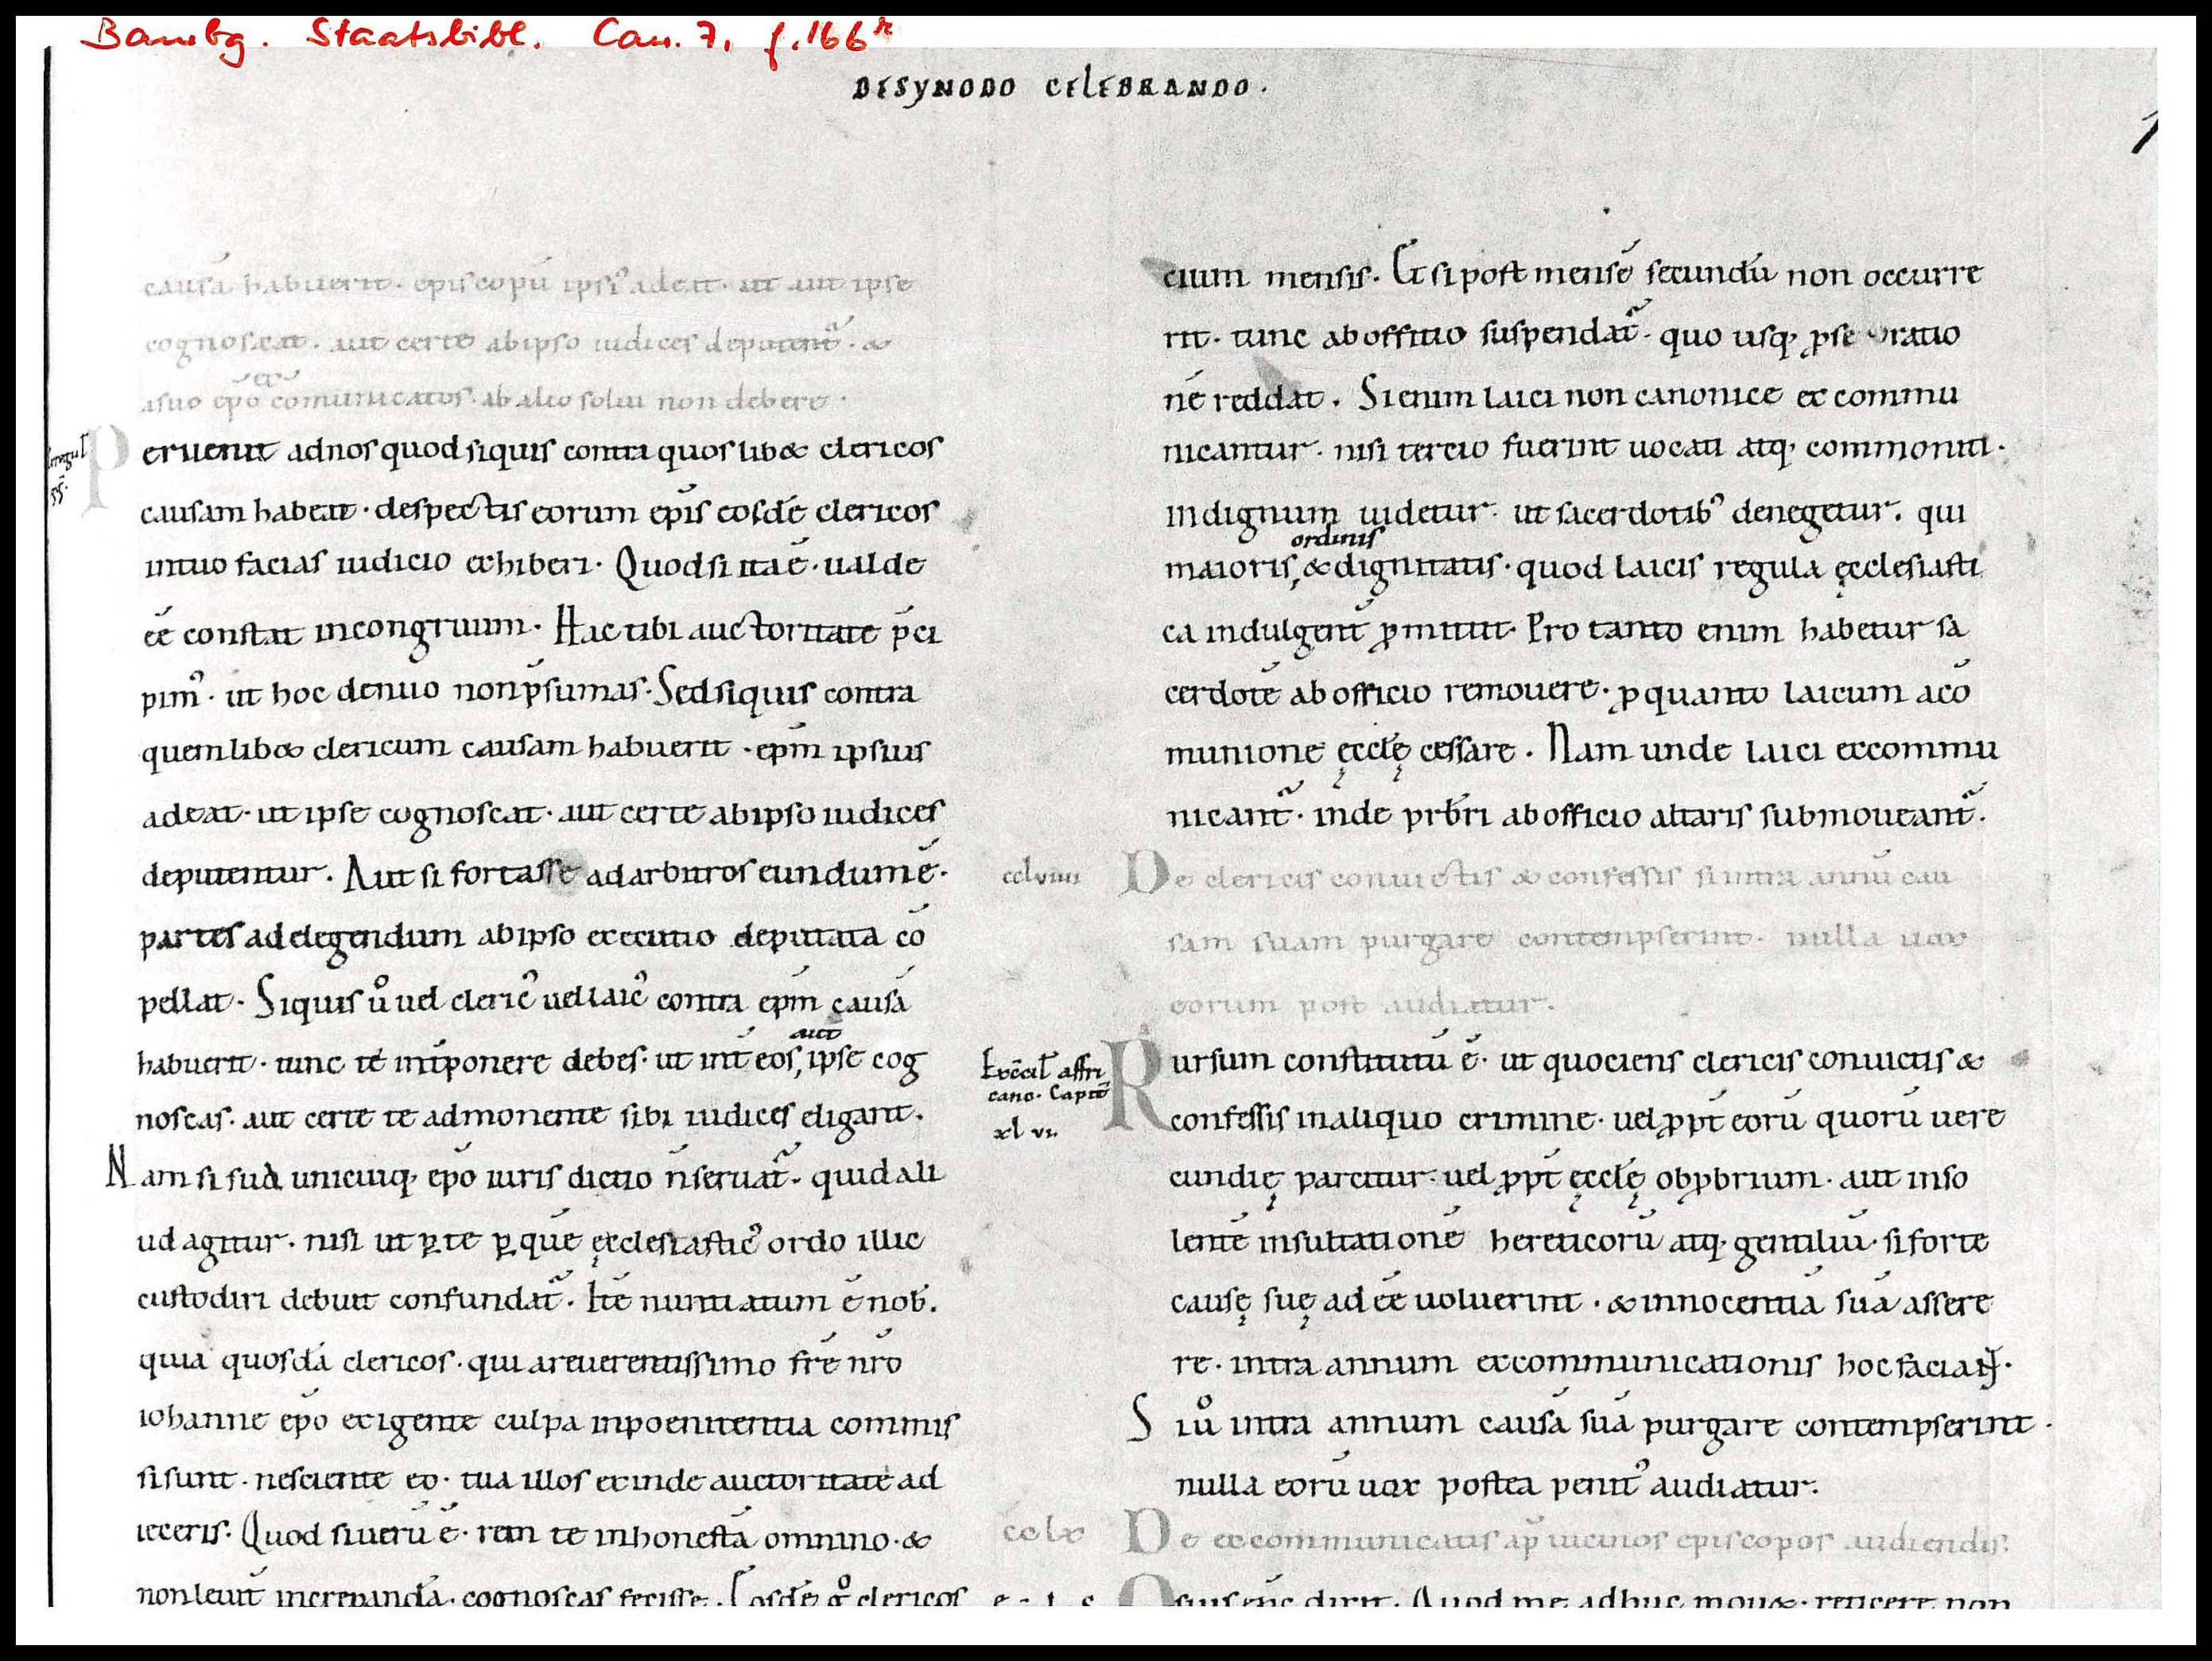 Bambg. Staatsbibl. Can. 7, f. 166r
DE SYNODO CELEBRANDO.
causā habuerit. episcopū ipsiꝰ adeat. ut aut ipse
cognoscat. aut certe ab ipso iudices deputent᷑. &
a suo ep̄o excōmunicatos. ab alio solui non debere.
Peruenit ad nos quod siquis contra quoslib& clericos
causam habeat. despectis eorum ep̄is eosdē clericos
intuo facias iudicio exhiberi. Quod si ita ē. ualde
eē constat incongruum. Hac tibi auctoritate p̄ci
pimꝰ. ut hoc denuo non p̄sumas. Sed siquis contra
quemlib& clericum causam habuerit. ep̄m ipsius
adeat. ut ipse cognoscat. aut certe ab ipso iudices
deputentur. Aut si fortasse ad arbitros eundum ē.
partes ad elegendum ab ipso executio deputata cō
pellat. Siquis ů uel clericꝰ uel laicꝰ contra ep̄m causā
habuerit. tunc te int̄ponere debes. ut int̄ eos, aut ipse cog
noscas. aut certe te admonente sibi iudices eligant.
Nam si sua unicuiq; ep̄o iurisdictio n̄ seruat᷑. quid ali
ud agitur. nisi ut ꝑ te ꝑ quē ęcclesiasticꝰ ordo illic
custodiri debuit confundat᷑. Itē nuntiatum ē nob̄.
quia quosdā clericos. qui a reuerentissimo fr̄e nr̄o
iohanne ep̄o exigente culpa in poenitentia commis
si sunt. nesciente eo. tua illos exinde auctoritate ad
ieceris. Quod si uerū ē. rem te inhonestā omnino. &
non leuit̄ increpanda. cognoscas fecisse. Eosdē g̊ clericos
cium mensis. Et si post mensē secundū non occurre
rit. tunc ab offitio suspendat᷑. quo usq; ꝑ se oratio
nē reddat. Si enim laici non canonice excommu
nicantur. nisi tercio fuerint uocati atq; commoniti.
Indignum uidetur. ut sacerdotibꝰ denegetur. qui
maioris, ordinis & dignitatis. quod laicis regula ęcclesiasti
ca indulgent̄ ꝑmittit. Pro tanto enim habetur sa
cerdotē ab officio remouere. ꝓ quanto laicum a cō
munione ęcclę cessare. Nam unde laici excommu
nicant᷑. inde prb̄ri ab officio altaris submoueant᷑.
cclviiii De clericis conuictis & confessis si intra annū cau
sam suam purgare contempserint. nulla uox
eorum post audiatur.
Ex c̄cil̄ affri
cano. Capit̄
xl vi.
Rursum constitutū ē. ut quociens clericis conuictis &
confessis in aliquo crimine. uel ꝓpt̄ eorū quorū uere
cundię parcitur. uel ꝓpt̄ ęcclę obꝓbrium. aut inso
lentē insultationē hereticorū atq; gentiliū. si forte
causę suę adeē uoluerint. & innocentiā suā assere
re. intra annum excommunicationis hoc faciant.
Si ů intra annum causā suā purgare contempserint.
nulla eorū uox postea penitꝰ audiatur.
cclx De excommunicatis ap̄ uicinos episcopos audiendis.
Osius ep̄c dixit. Quod me adhuc mou&. reticere non